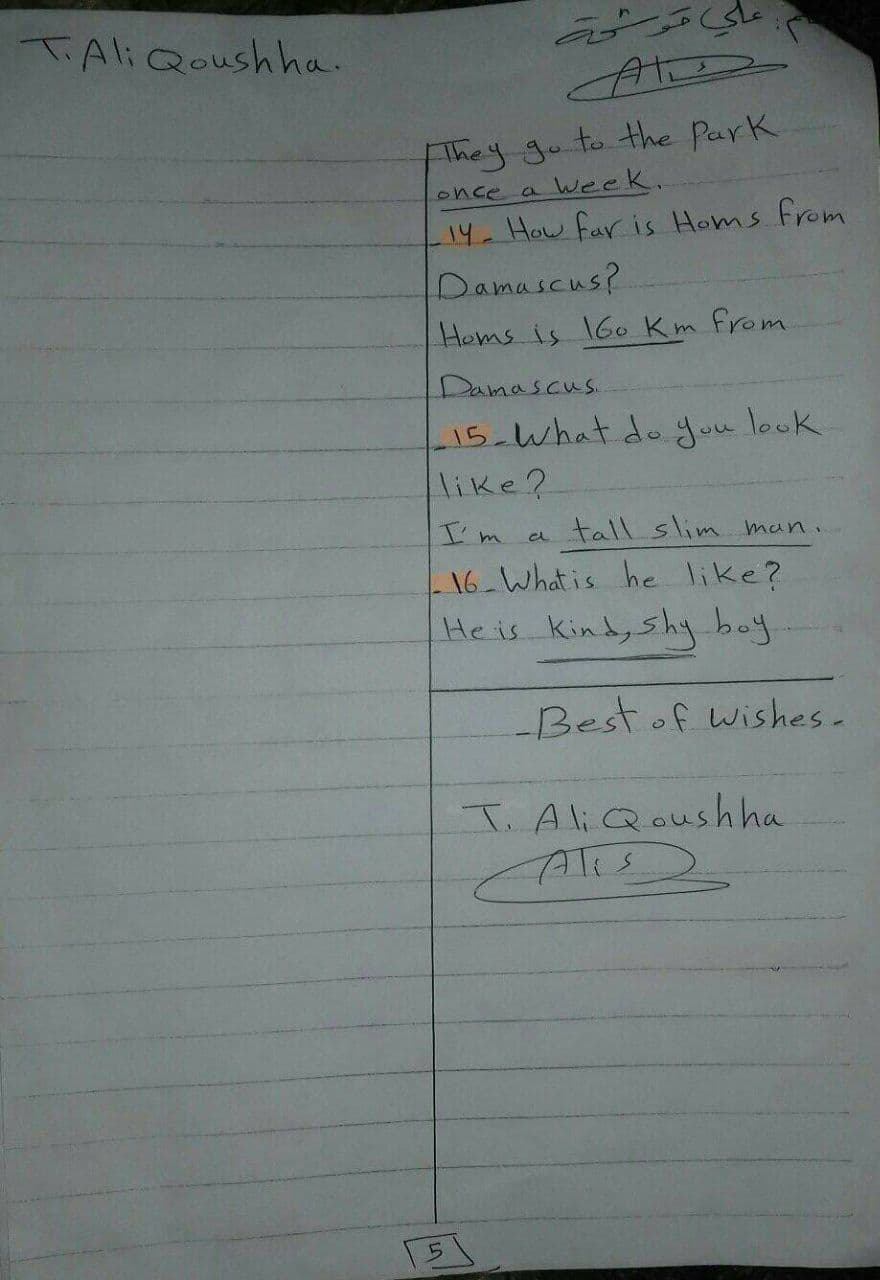 T. Ali Qoushha.
م: علي قوشحة
Ali s
They go to the Park
once a week.
14- How far is Homs from
Damascus?
Homs is 160 Km from
Damascus.
15- What do you look
like?
I'm a tall slim man.
16- What is he like?
He is kind, shy boy.
- Best of wishes -
T. Ali Qoushha
Ali s
5